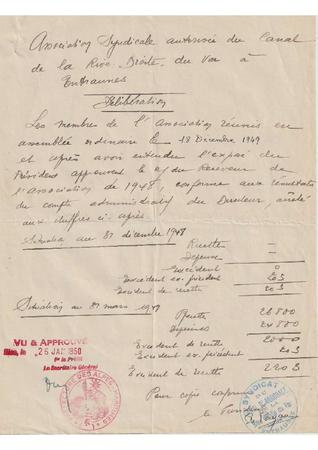 Association Syndicale autorisée du Canal
de la Rive Droite du Var à
Entraunes
Délibération
Les membres de l'Association réunis en
assemblée ordinaire le 18 Décembre 1949
et après avoir entendu l'exposé du
Président approuvent le c/ du Receveur de
l'Association de 1948, conforme aux résultats
du compte administratif du Directeur, arrêté
aux chiffres ci après
Situation au 31 décembre 1948
Recette —
Dépense —
Excédent 0
Excédent ex. précédent 203
Excédent de recette 203
Situation au 31 mars
Recette 22800
Dépenses
Excédent de recette 2000
Excédent ex. précédent 203
Excédent de recette 2203
VU & APPROUVÉ
Nice, le 26 JAN 1950
Le Secrétaire Général
Pour copie conforme
SYNDICAT